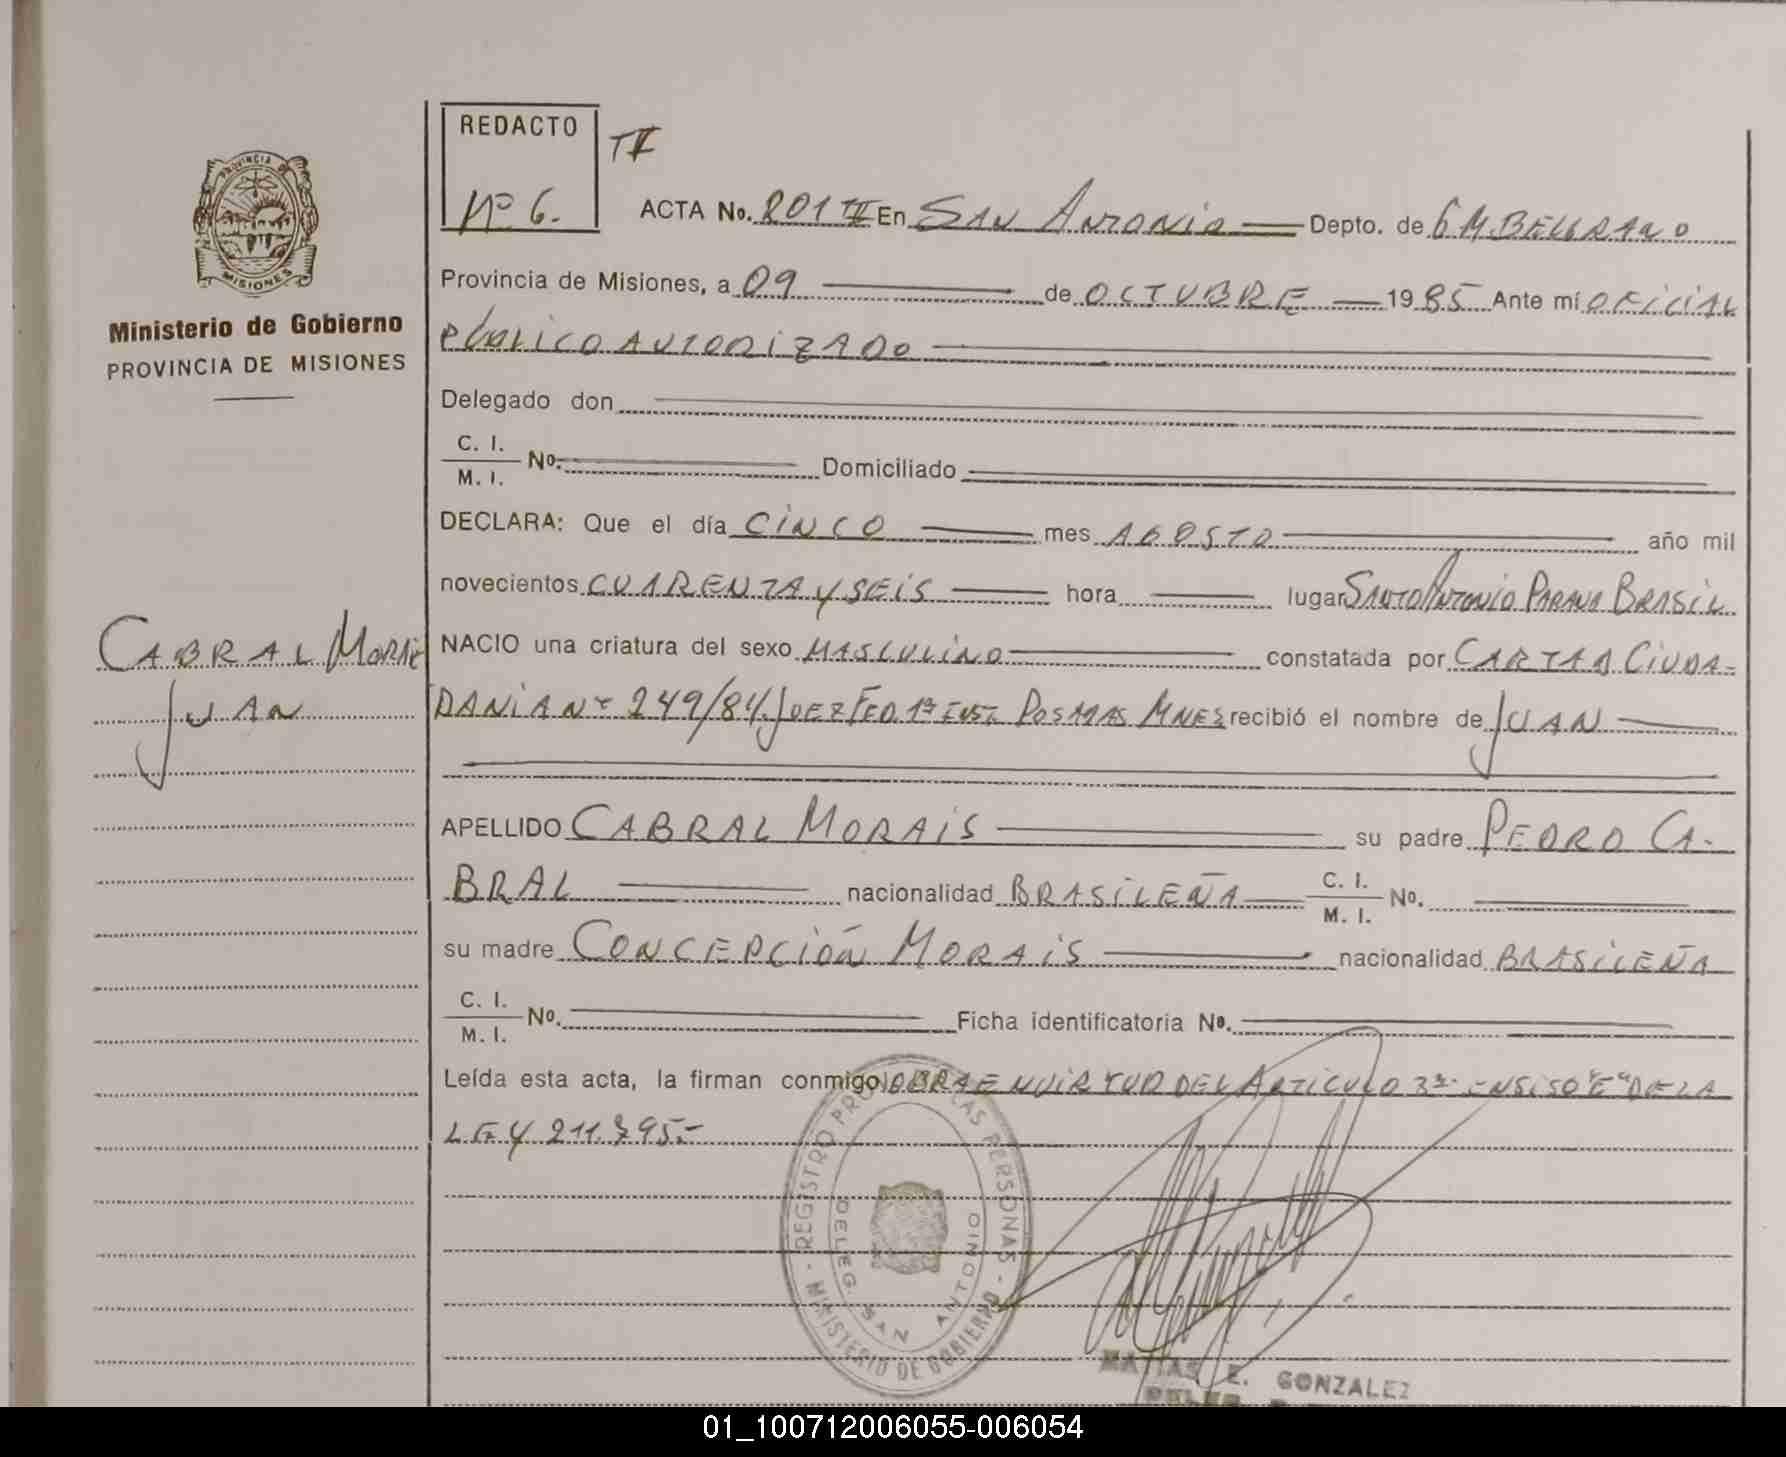 REDACTO
TII
Nº 6.
ACTA No. 801 TII En SAN ANTONIO Depto. de G M BELGRANO
Provincia de Misiones, a 09 de OCTUBRE 1985 Ante mí OFICIAL
PUBLICO AUTORIZADO
Delegado don
C. I.
M. I. No. Domiciliado
DECLARA: Que el día CINCO mes AGOSTO año mil
novecientos CUARENTA y SEIS hora lugar SANTO ANTONIO PARANA BRASIL
NACIO una criatura del sexo MASCULINO constatada por CARTA A CIUDA-
DANIA Nº 249/84. JUEZ FED. 1ª INST. POSADAS MNES recibió el nombre de JUAN
APELLIDO CABRAL MORAIS su padre PEDRO CA-
BRAL nacionalidad BRASILEÑA C. I.
M. I. No.
su madre CONCEPCIÓN MORAIS nacionalidad BRASILEÑA
C. I.
M. I. No. Ficha identificatoria No.
Leída esta acta, la firman conmigo LABRA EN VIRTUD DEL ARTICULO 3º INSISO "E" DE LA
LEY 211.795.-
PROVINCIA DE
MISIONES
Ministerio de Gobierno
PROVINCIA DE MISIONES
CABRAL MORAIS
JUAN
REGISTRO PROV. DE LAS PERSONAS
MINISTERIO DE GOBIERNO
DELEG. SAN ANTONIO
MATIAS E. GONZALEZ
01_100712006055-006054